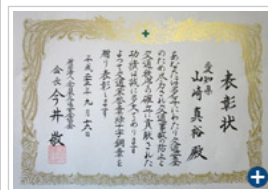 表彰状
愛知県
山﨑真裕殿
あなたは多年にわたり交通安全
のため尽力され交通事故の防止と
交通秩序の確立に貢献された
功績は誠に多大であります
よってここに交通栄誉章緑十字銅章を
贈り表彰します
平成二十五年九月十六日
会長 今井敬